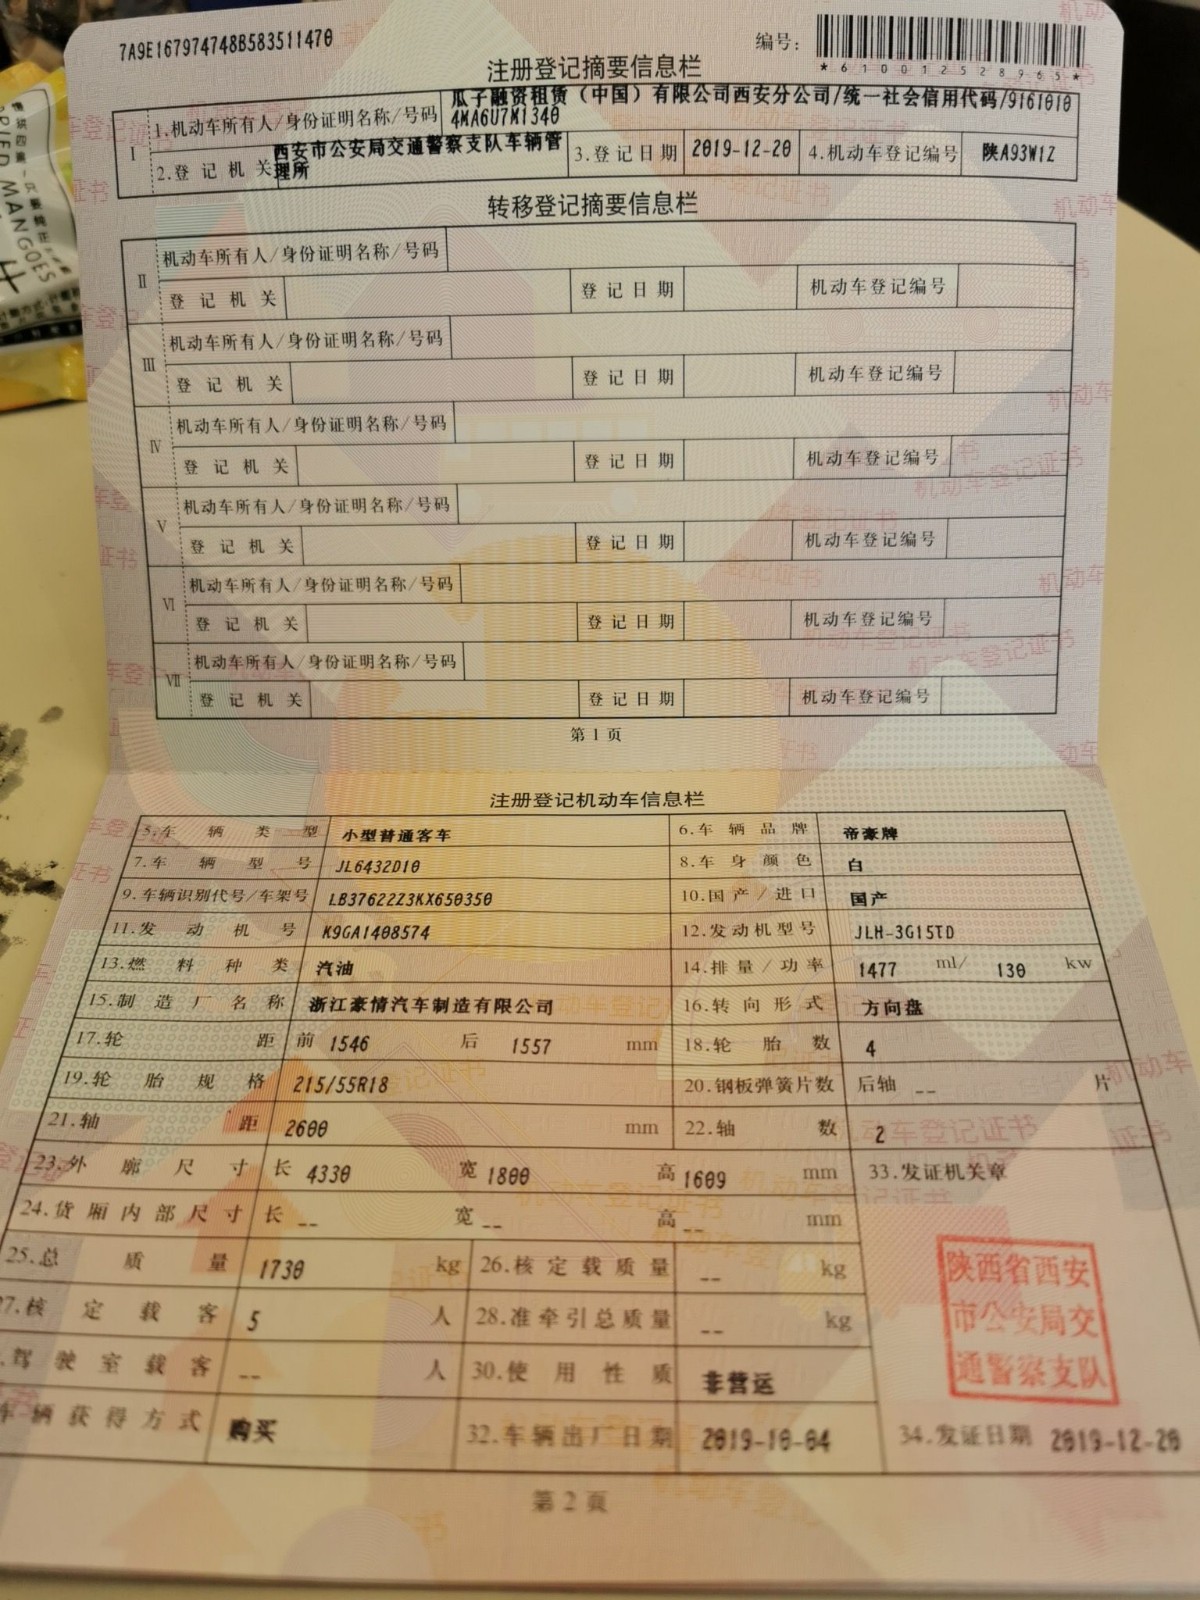 7A9E167974748B583511470
编号：
*610012528965*
注册登记摘要信息栏
I
1.机动车所有人/身份证明名称/号码 瓜子融资租赁（中国）有限公司西安分公司/统一社会信用代码/9161010
4MA6U7M1340
2.登记机关 西安市公安局交通警察支队车辆管
理所
3.登记日期 2019-12-20 4.机动车登记编号 陕A93W1Z
转移登记摘要信息栏
II 机动车所有人/身份证明名称/号码
登记机关 登记日期 机动车登记编号
III 机动车所有人/身份证明名称/号码
登记机关 登记日期 机动车登记编号
IV 机动车所有人/身份证明名称/号码
登记机关 登记日期 机动车登记编号
V 机动车所有人/身份证明名称/号码
登记机关 登记日期 机动车登记编号
VI 机动车所有人/身份证明名称/号码
登记机关 登记日期 机动车登记编号
VII 机动车所有人/身份证明名称/号码
登记机关 登记日期 机动车登记编号
第1页
注册登记机动车信息栏
5.车辆类型 小型普通客车 6.车辆品牌 帝豪牌
7.车辆型号 JL6432D10 8.车身颜色 白
9.车辆识别代号/车架号 LB37622Z3KX650350 10.国产/进口 国产
11.发动机号 K9GA1408574 12.发动机型号 JLH-3G15TD
13.燃料种类 汽油 14.排量/功率 1477 ml/ 130 kw
15.制造厂名称 浙江豪情汽车制造有限公司 16.转向形式 方向盘
17.轮距 前 1546 后 1557 mm 18.轮胎数 4
19.轮胎规格 215/55R18 20.钢板弹簧片数 后轴 -- 片
21.轴距 2600 mm 22.轴数 2
23.外廓尺寸 长 4330 宽 1800 高 1609 mm 33.发证机关章
24.货厢内部尺寸 长 -- 宽 -- 高 -- mm
25.总质量 1730 kg 26.核定载质量 -- kg
27.核定载客 5 人 28.准牵引总质量 -- kg
驾驶室载客 -- 人 30.使用性质 非营运
车辆获得方式 购买 32.车辆出厂日期 2019-10-04 34.发证日期 2019-12-20
陕西省西安
市公安局交
通警察支队
第2页
DRIED MANGOES